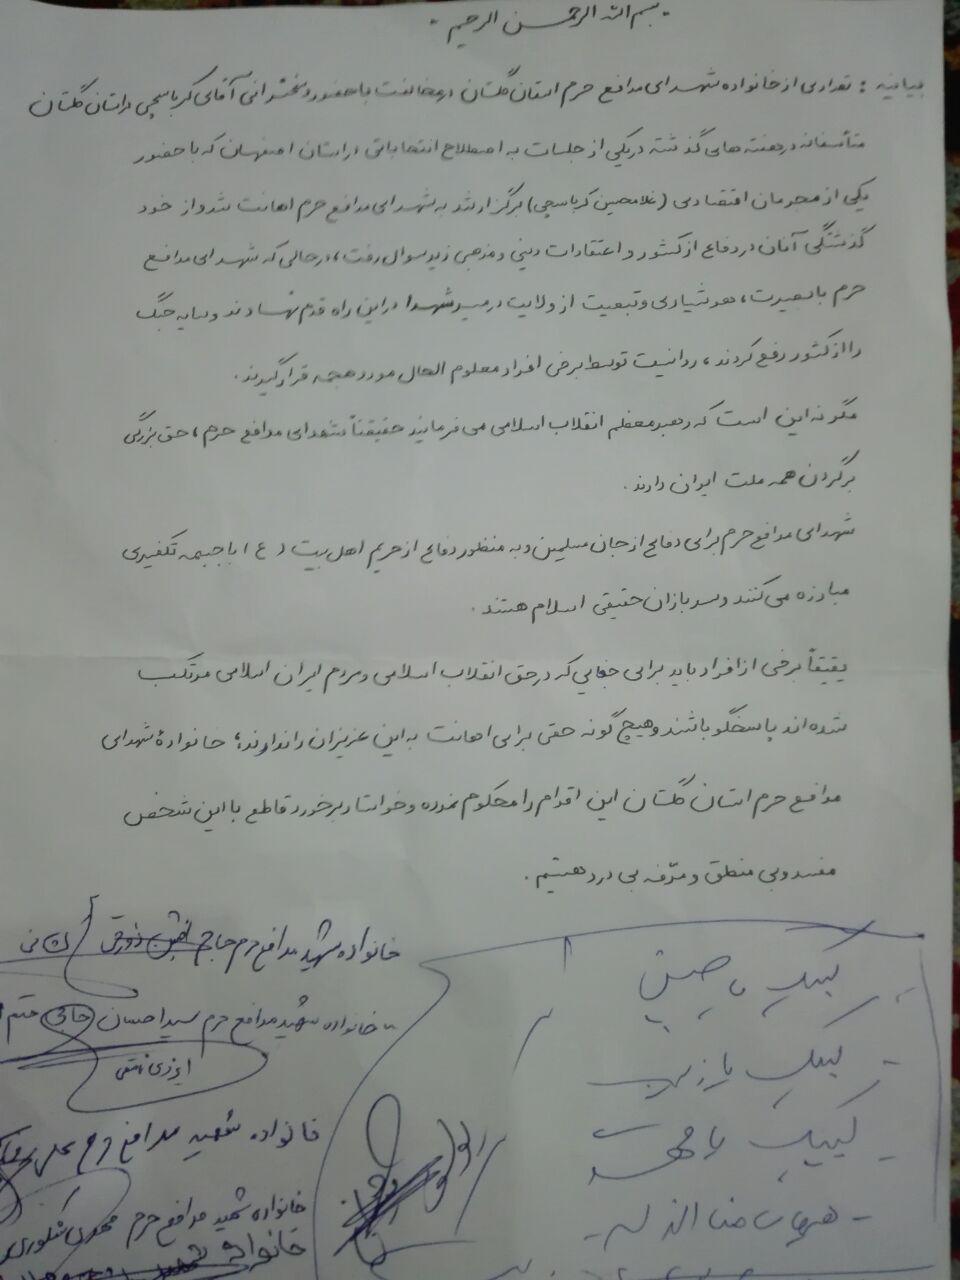 - بسم الله الرحمن الرحیم -
بیانیه : تعدادی از خانواده شهدای مدافع حرم استان گلستان در مخالفت با حضور و سخنرانی آقای کرباسچی در استان گلستان
متأسفانه در هفته های گذشته در یکی از جلسات به اصطلاح انتخاباتی در استان اصفهان که با حضور
یکی از مجرمان اقتصادی (غلامحسین کرباسچی) برگزار شد به شهدای مدافع حرم اهانت شد و از خود
گذشتگی آنان در دفاع از کشور و اعتقادات دینی و مذهبی زیر سوال رفت ، در حالی که شهدای مدافع
حرم با بصیرت ، هوشیاری و تبعیت از ولایت در مسیر شهدا در این راه قدم نهادند و سایه جنگ
را از کشور رفع کردند ، روا نیست توسط برخی افراد معلوم الحال مورد هجمه قرار گیرند .
مگر نه این است که رهبر معظم انقلاب اسلامی می فرمایند حقیقتاً شهدای مدافع حرم ، حق بزرگی
بر گردن همه ملت ایران دارند .
شهدای مدافع حرم برای دفاع از جان مسلمین و به منظور دفاع از حریم اهل بیت (ع) با جبهه تکفیری
مبارزه می کنند و سربازان حقیقی اسلام هستند .
یقیناً برخی از افراد باید برای جفایی که در حق انقلاب اسلامی و مردم ایران اسلامی مرتکب
شده اند پاسخگو باشند و هیچ گونه حقی برای اهانت به این عزیزان را ندارند ؛ خانوادهٔ شهدای
مدافع حرم استان گلستان این اقدام را محکوم نموده و خواستار برخورد قاطع با این شخص
مفسد و بی منطق و مرّفه بی درد هستیم .
خانواده شهید مدافع حرم حاج
- خانواده شهید مدافع حرم سید احسان
خانواده شهید مدافع حرم
خانواده شهید مدافع حرم مهدی
خانواده
- لبیک یا
- لبیک یا زینب
- لبیک یا
- هیهات منا الذله